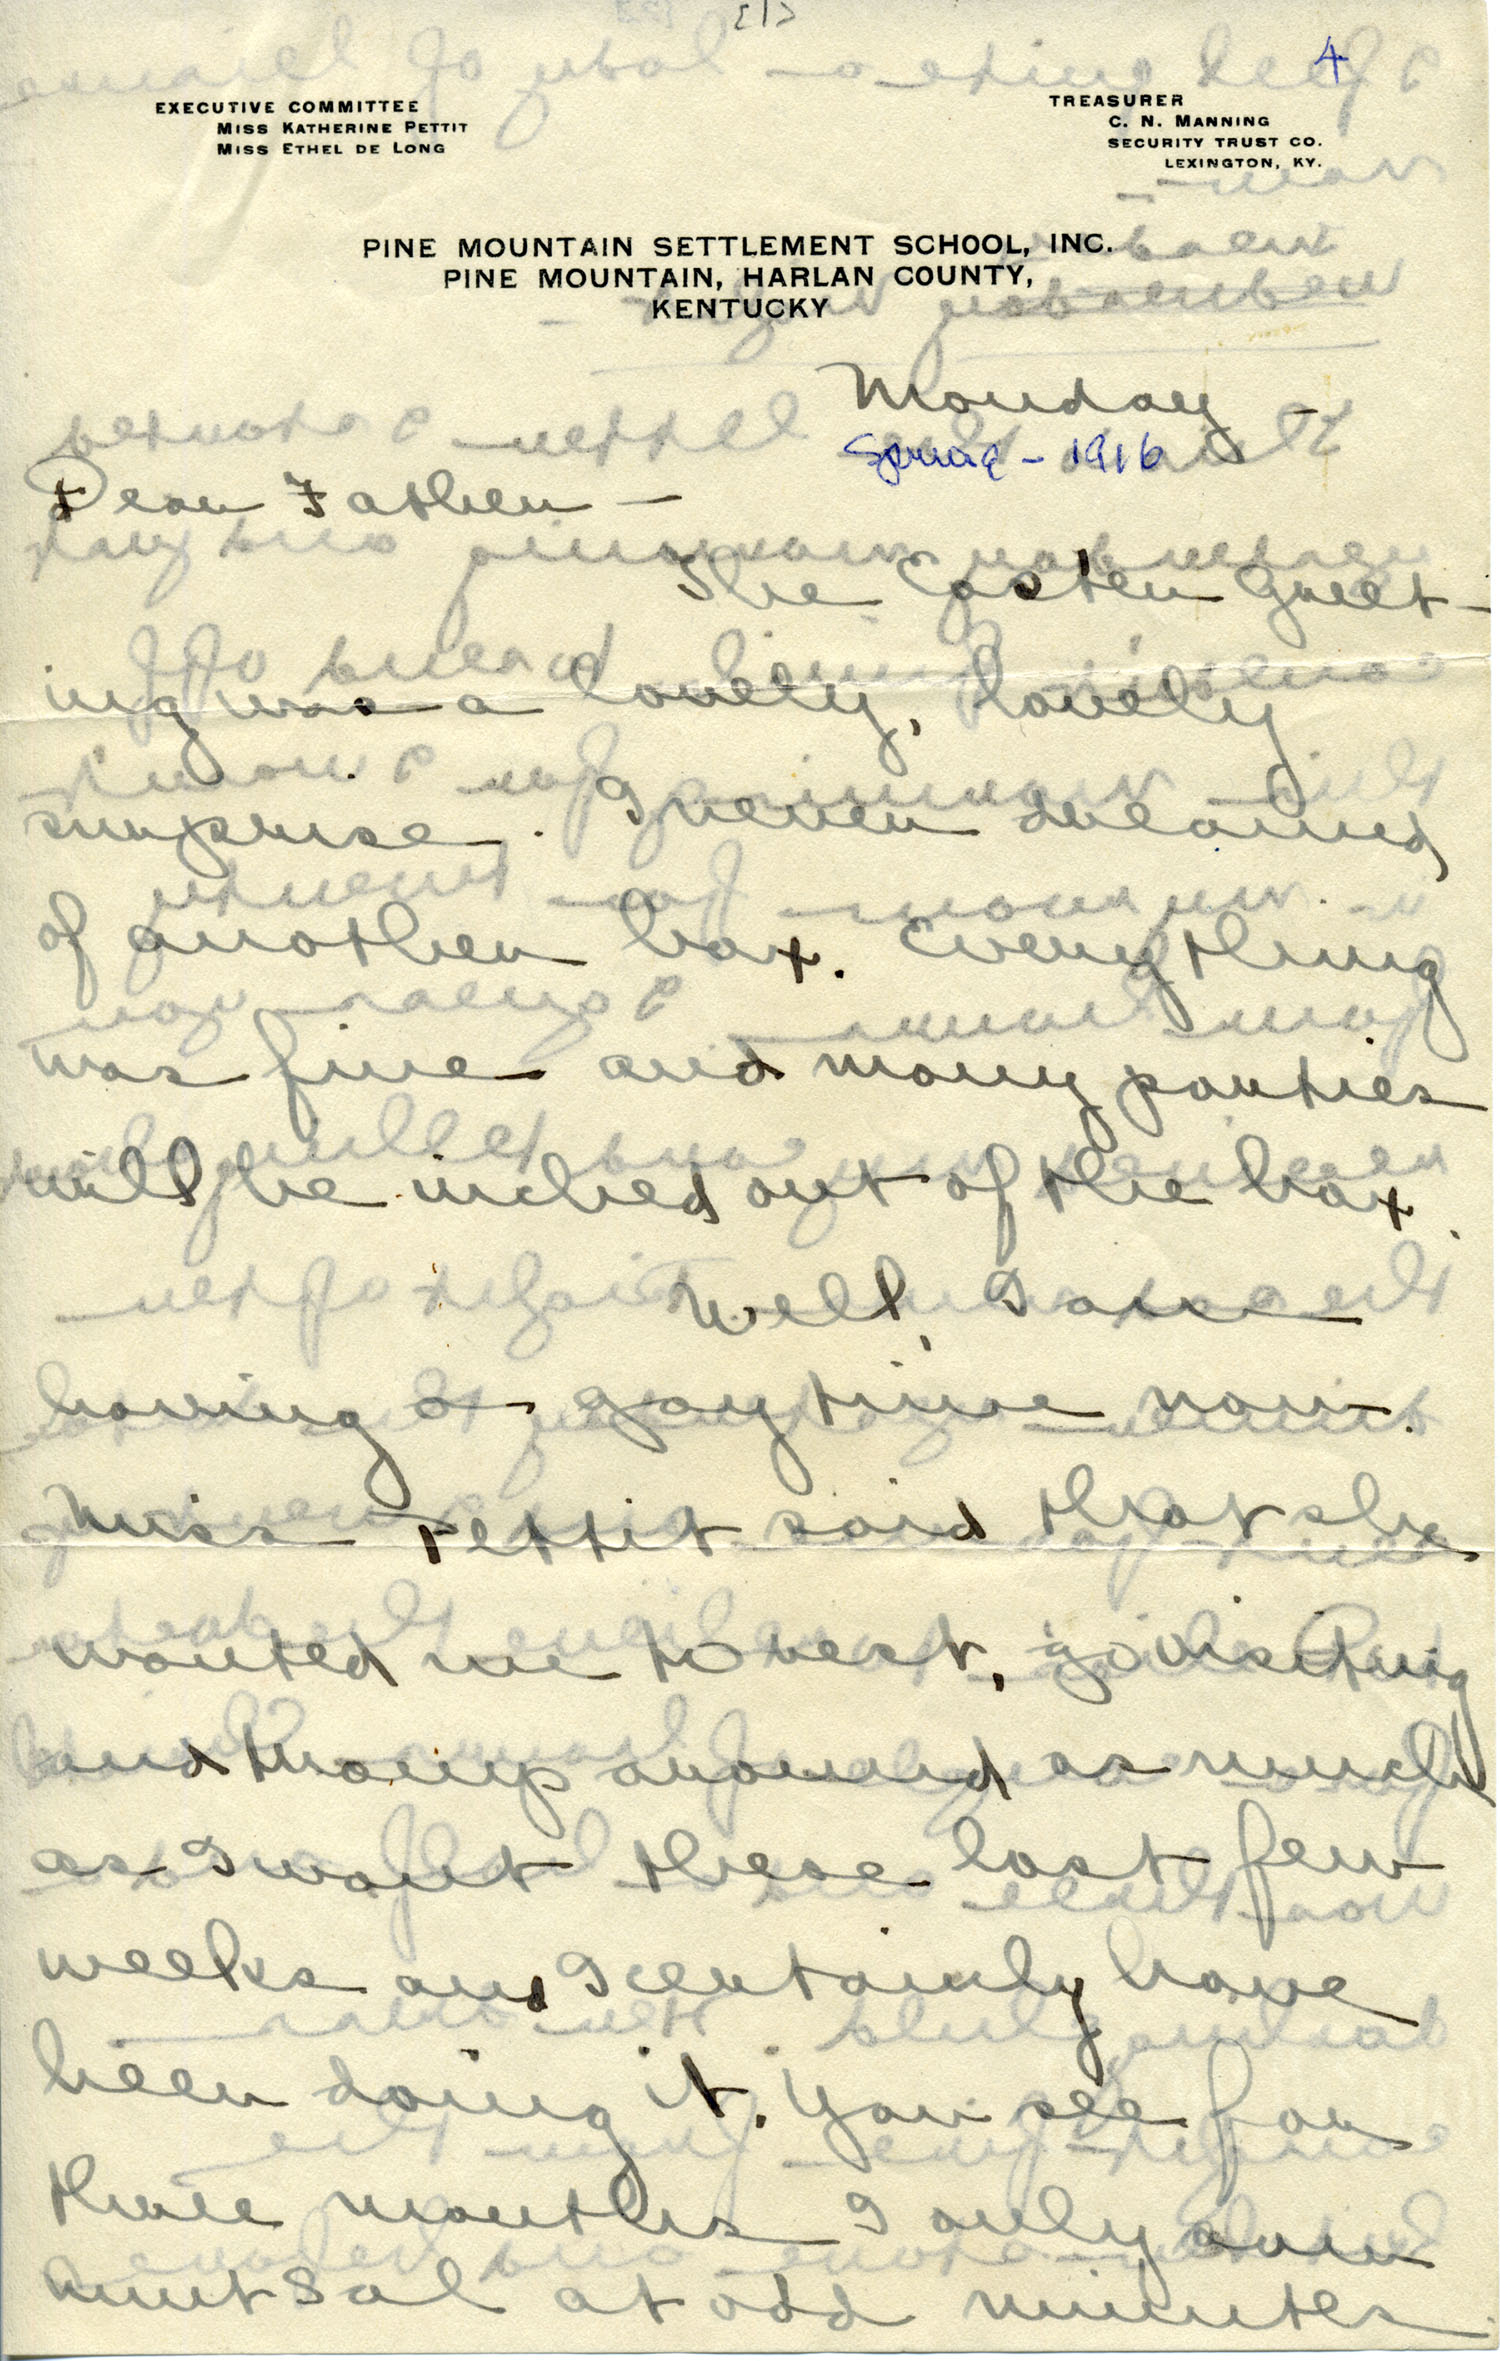 [1]
4
EXECUTIVE COMMITTEE
MISS KATHERINE PETTIT
MISS ETHEL DE LONG
TREASURER
C. N. MANNING
SECURITY TRUST CO.
LEXINGTON, KY.
PINE MOUNTAIN SETTLEMENT SCHOOL, INC.
PINE MOUNTAIN, HARLAN COUNTY,
KENTUCKY
Monday -
Spring - 1916
Dear Father -
The Easter Greet-
ing was a lovely, lovely
surprise. I never dreamed
of another box. Everything
was fine and many parties
will be inched out of the box.
Well, I am
having a gay time now.
Miss Pettit said that she
wanted me to rest, go visiting
and tramp around as much
as I want these last few
weeks and I certainly have
been doing it. You see for
three months I only saw
Aunt Sal at odd minutes